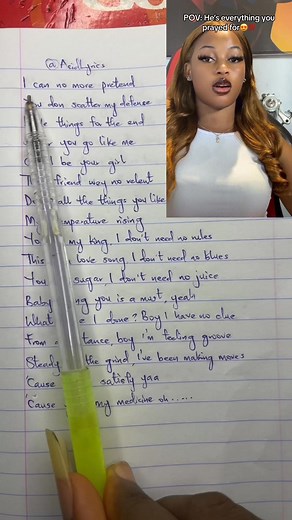 POV: He's everything you
prayed for😍
I can no more pretend
don scatter my defense
things for the end
you go like me
be your girl
friend way no relent
all the things you like
rising
my king, I don't need no rules
love song, I don't need no blues
sugar, I don't need no juice
Baby you is a must, yeah
What I done? Boy I have no clue
From boy, I'm feeling groove
the grind, I've been making moves
'Cause satisfy yaa
'Cause my medicine oh......